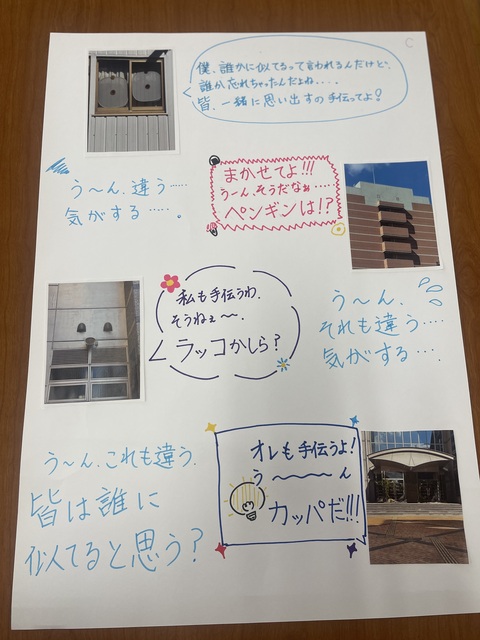 C
僕、誰かに似てるって言われるんだけど、
誰か忘れちゃったんだよね....
皆、一緒に思い出すの手伝ってよ!
う〜ん、違う.....
気がする.....。
まかせてよ!!!
うーん、そうだなぁ.....
ペンギンは!?
私も手伝うわ、
そうねぇ〜、
ラッコかしら?
う〜ん、
それも違う....
気がする....
オレも手伝うよ!
う〜〜〜ん
カッパだ!!!
う〜ん、これも違う、
皆は誰に
似てると思う?